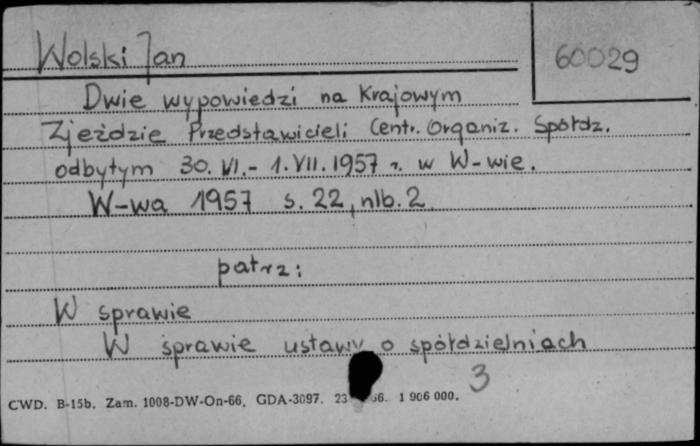 Wolski Jan
60029
Dwie wypowiedzi na Krajowym
Zjeździe Przedstawicieli Centr. Organiz. Spółdz.
odbytym 30. VI. - 1. VII. 1957 r. w W-wie.
W-wa 1957 s. 22, nlb. 2
patrz:
W sprawie
W sprawie ustawy o spółdzielniach
3
CWD. B-15b. Zam. 1008-DW-On-66. GDA-3097. 23 66. 1 906 000.